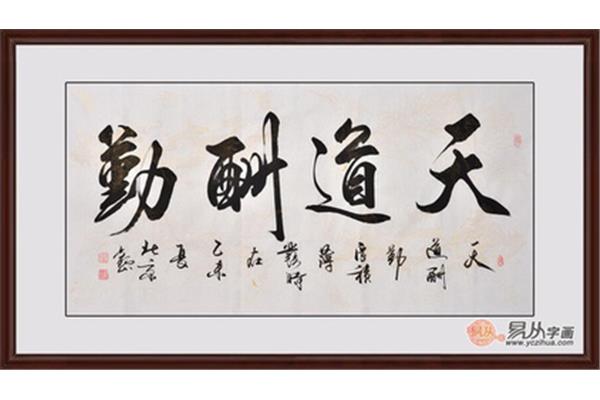 天道酬勤
天
道酬
勤
厚積
薄
發時
在
乙未
北京
易从字画
www.yczihua.com